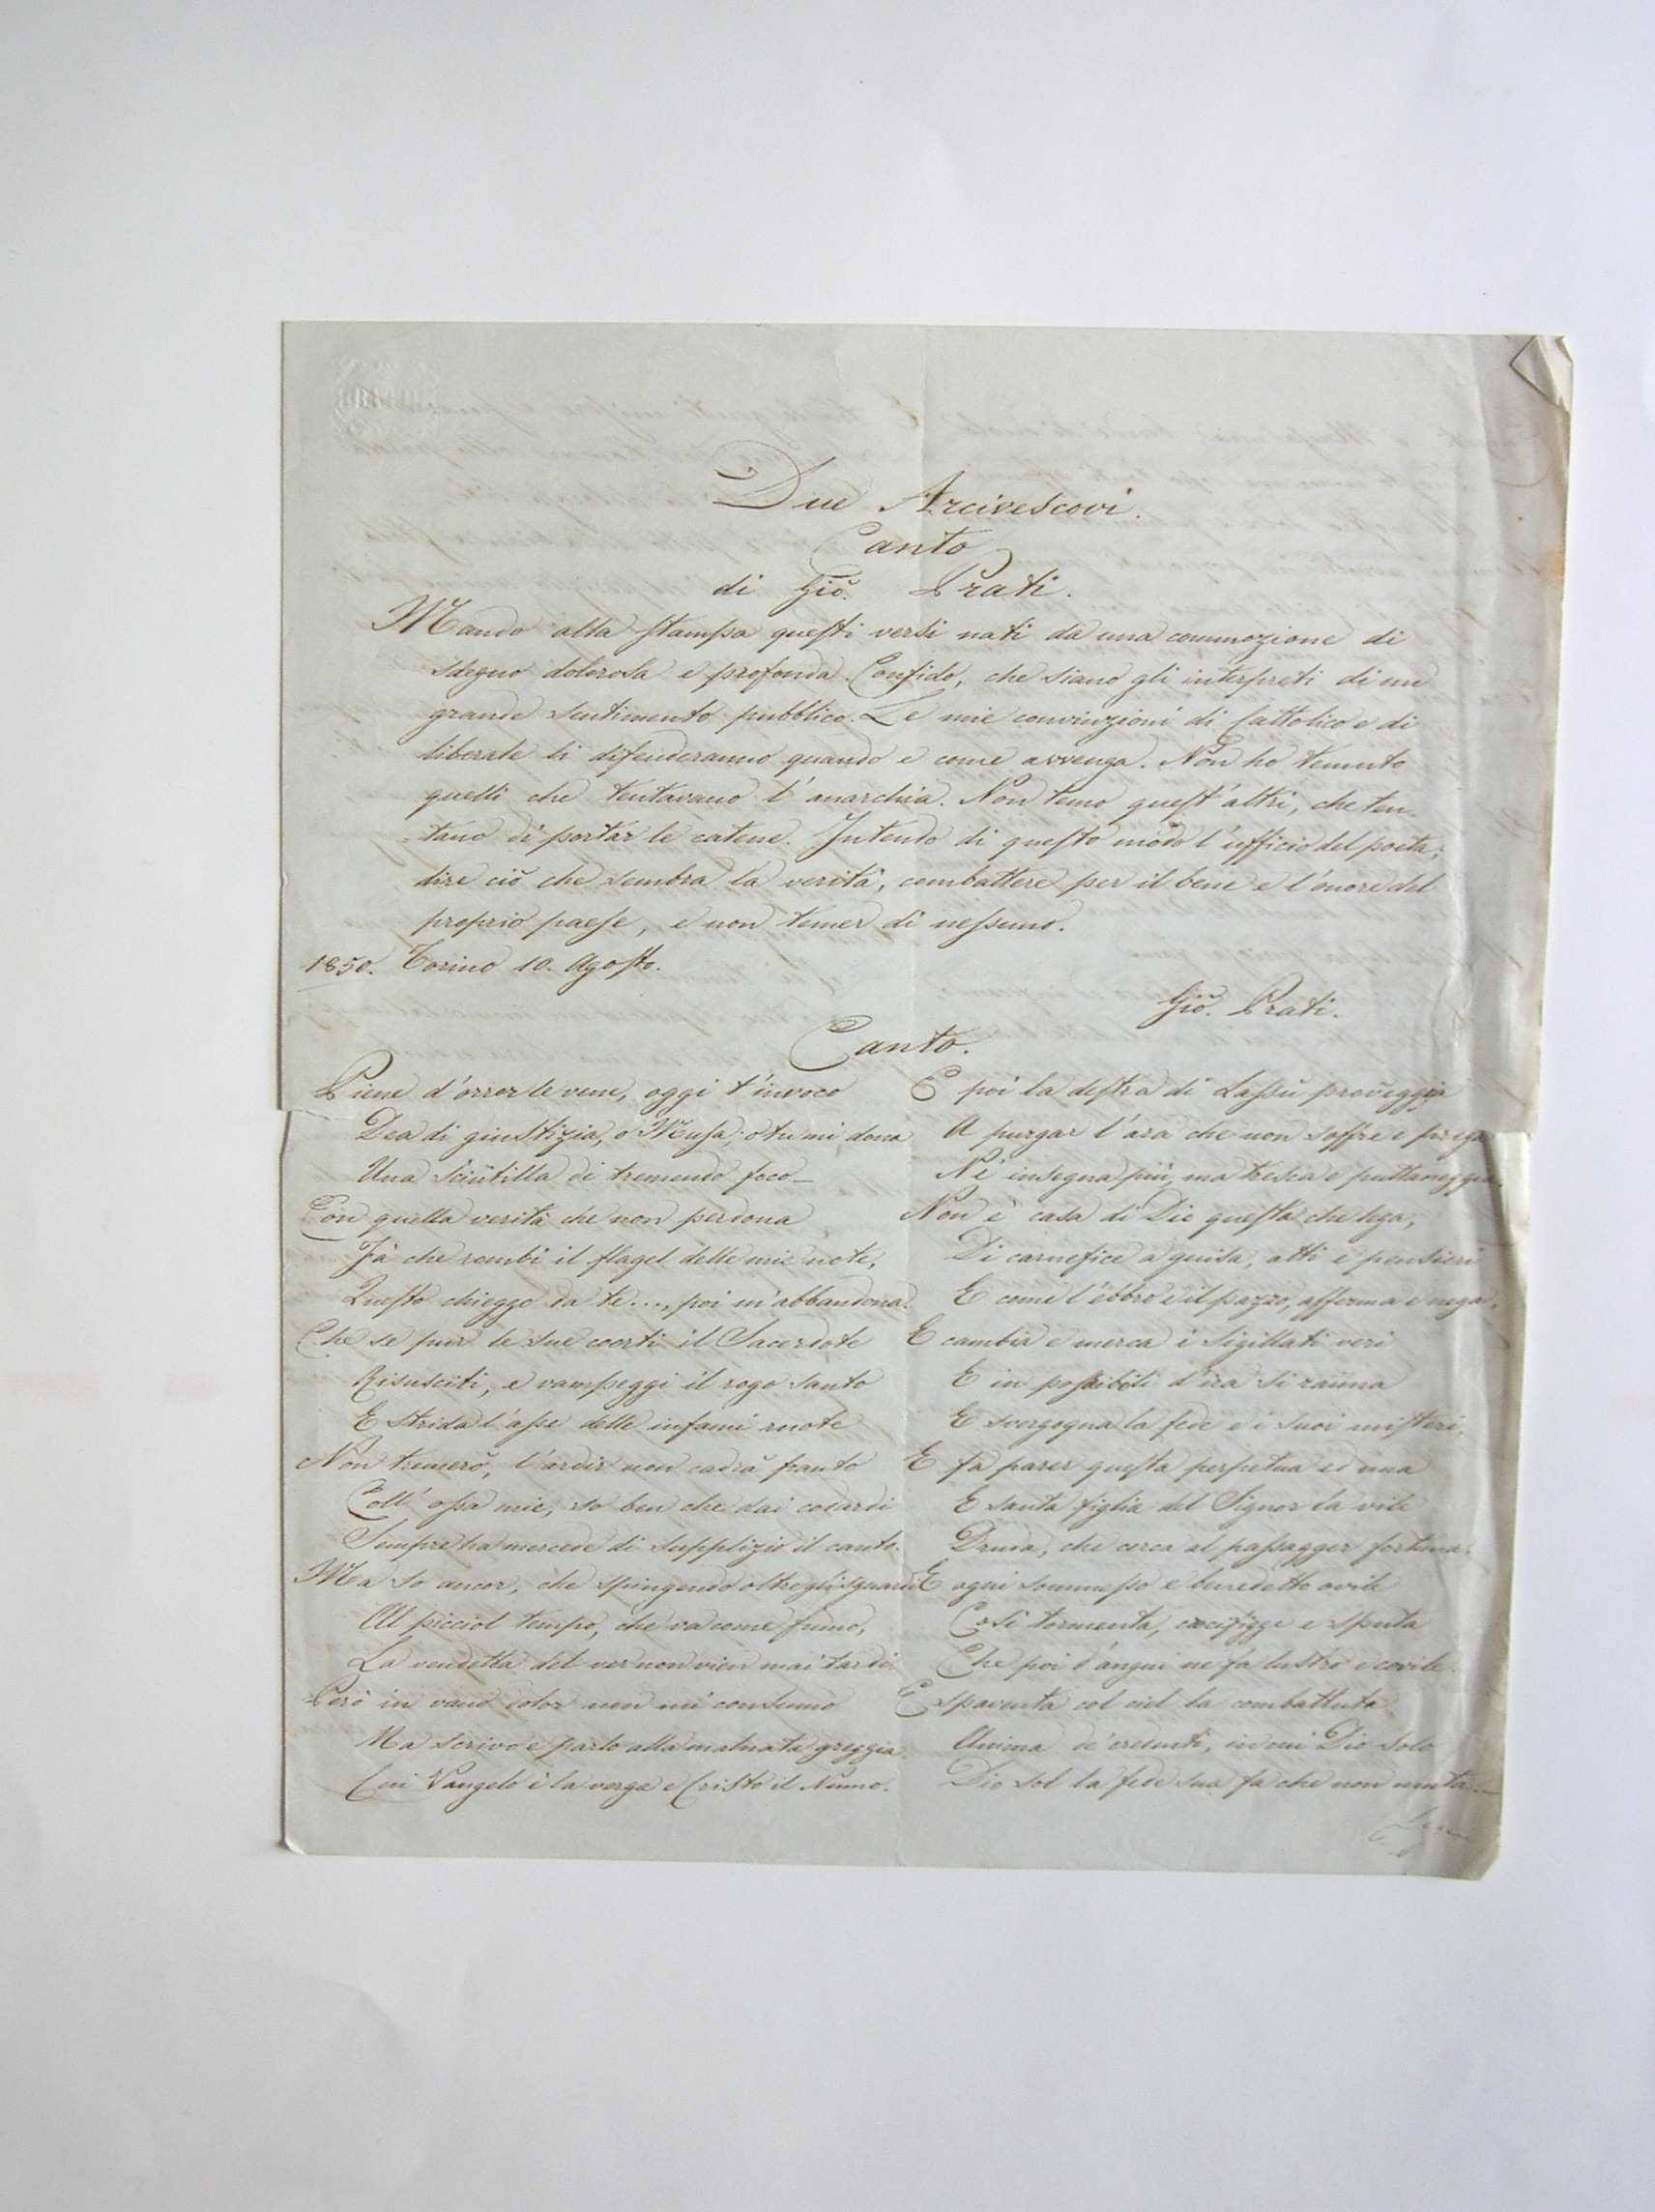 Due Arcivescovi.
Canto
di Gio. Prati.
Mando alla stampa questi versi nati da una commozione di
sdegno dolorosa e profonda. Confido, che siano gli interpreti di un
grande sentimento pubblico. Le mie convinzioni di Cattolico e di
liberale li difenderanno quando e come avvenga. Non ho temuto
quelli che tentavano l'anarchia. Non temo quest'altri, che ten-
tano di portar le catene. Intendo di questo modo l'ufficio del poeta;
dire ciò che sembra la verità, combattere per il bene e l'onore del
proprio paese, e non temer di nessuno.
1850. Torino 10. Agosto.
Gio. Prati.
Canto.
Piene d'orror le vene, oggi t'invoco
Dea di giustizia, o Musa; o tu mi dona
Una scintilla di tremendo foco
Con quella verità che non perdona
Fà che rombi il flagel delle mie note,
Questo chieggo da te...., poi m'abbandona.
Che se pur le sue coorti il Sacerdote
Risusciti, e vampeggi il rogo santo
E strida l'asse delle infami ruote
Non tremerò, l'ardir non cadrà franto
Coll'ossa mie, so ben che dai codardi
Sempre ha mercede di supplizio il canto.
Ma so ancor, che spingendo oltre gli sguardi
Al picciol tempo, che va come fumo,
La vendetta del ver non vien mai tardi.
Però in vano dolor non mi consumo
Ma scrivo e parlo alla malnata greggia
Cui Vangelo è la verga e Cristo il Numo.
E poi la destra di Lassù proveggia
A purgar l'ara che non soffre e prega
Nè insegna più, ma tresca e puttaneggia.
Non è casa di Dio questa che lega,
Di carnefice a guisa, atti e pensieri
E come l'ebbro e il pazzo, afferma e nega,
E cambia e merca i sigillati veri
E in possibili d'ira si raüna
E svergogna la fede e i suoi misteri,
E fa parer questa perpetua ed una
E santa figlia del Signor la vile
Druda, che cerca al passagger fortuna.
E ogni sommesso e benedetto ovile
Così tormenta, crocifigge e sputa
Che poi d'angui ne fa lustro e covile.
E spaventa col ciel la combattuta
Anima de' credenti, in cui Dio solo
Dio sol la fede sua fa che non muta.